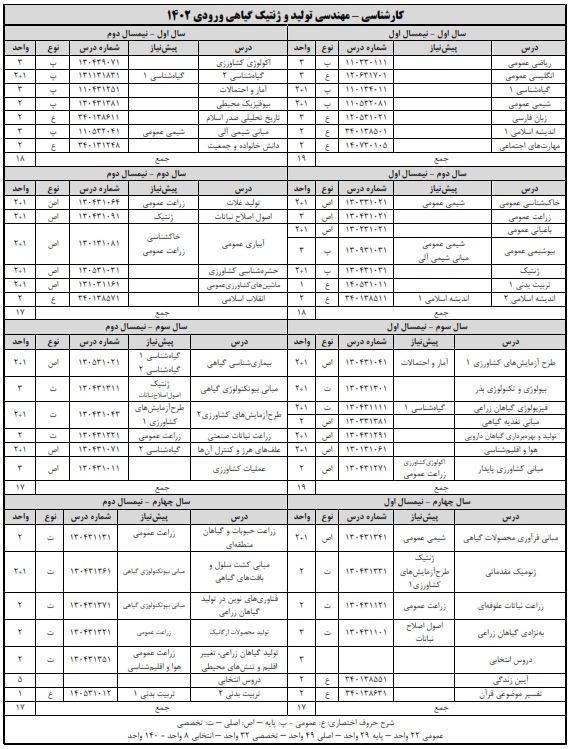 کارشناسی - مهندسی تولید و ژنتیک گیاهی ورودی ۱۴۰۲
سال اول - نیمسال اول
درس پیش‌نیاز شماره درس نوع واحد
ریاضی عمومی ۱۱۰۳۳۰۱۱۱ پ ۳
انگلیسی عمومی ۱۲۰۶۳۱۷۰۱ ع ۳
گیاه‌شناسی ۱ ۱۱۰۱۳۴۰۱۱ پ ۲۰۱
شیمی عمومی ۱۱۰۵۳۲۰۸۱ پ ۲۰۱
زبان فارسی ۱۲۰۵۳۱۰۲۱ ع ۳
اندیشه اسلامی ۱ ۳۴۰۱۳۸۵۰۱ ع ۲
مهارت‌های اجتماعی ۱۴۰۷۳۰۱۰۵ ع ۲
جمع ۱۹
سال اول - نیمسال دوم
درس پیش‌نیاز شماره درس نوع واحد
اکولوژی کشاورزی ۱۳۰۴۳۹۰۷۱ پ ۳
گیاه‌شناسی ۲ گیاه‌شناسی ۱ ۱۳۱۱۳۱۸۳۱ پ ۲۰۱
آمار و احتمالات ۱۱۰۴۳۱۲۵۱ پ ۳
بیوفیزیک محیطی ۱۳۰۴۳۱۳۸۱ پ ۲
تاریخ تحلیلی صدر اسلام ۳۴۰۱۳۸۶۱۱ ع ۲
مبانی شیمی آلی شیمی عمومی ۱۱۰۵۳۲۰۴۱ پ ۳
دانش خانواده و جمعیت ۳۴۰۱۳۱۲۴۸ ع ۲
جمع ۱۸
سال دوم - نیمسال اول
درس پیش‌نیاز شماره درس نوع واحد
خاک‌شناسی عمومی شیمی عمومی ۱۳۰۳۳۱۰۲۱ اص ۲۰۱
زراعت عمومی ۱۳۰۴۳۱۰۲۱ اص ۳
باغبانی عمومی ۱۳۰۲۳۱۰۲۱ اص ۲۰۱
بیوشیمی عمومی شیمی عمومی مبانی شیمی آلی ۱۳۰۹۳۱۰۳۱ پ ۳
ژنتیک ۱۳۰۴۳۱۰۳۱ پ ۲۰۱
تربیت بدنی ۱ ۱۴۰۵۳۱۰۱۱ ع ۱
اندیشه اسلامی ۲ اندیشه اسلامی ۱ ۳۴۰۱۳۸۵۱۱ ع ۲
جمع ۱۸
سال دوم - نیمسال دوم
درس پیش‌نیاز شماره درس نوع واحد
تولید غلات زراعت عمومی ۱۳۰۴۳۱۰۶۴ اص ۲۰۱
اصول اصلاح نباتات ژنتیک ۱۳۰۴۳۱۰۹۱ اص ۲۰۱
آبیاری عمومی خاکشناسی زراعت عمومی ۱۳۰۱۳۱۰۸۱ اص ۲۰۱
حشره‌شناسی کشاورزی ۱۳۰۵۳۱۰۳۱ اص ۲۰۱
ماشین‌های‌کشاورزی‌عمومی ۱۳۱۰۳۱۱۶۱ اص ۲۰۱
انقلاب اسلامی ۳۴۰۱۳۸۵۷۱ ع ۲
جمع ۱۷
سال سوم - نیمسال اول
درس پیش‌نیاز شماره درس نوع واحد
طرح آزمایش‌های کشاورزی ۱ آمار و احتمالات ۱۳۰۴۳۱۰۴۱ اص ۲۰۱
بیولوژی و تکنولوژی بذر ۱۳۰۴۳۱۳۰۱ ت ۲۰۱
فیزیولوژی گیاهان زراعی گیاه‌شناسی ۱ ۱۳۰۴۳۱۱۱۱ ت ۲۰۱
مبانی تغذیه گیاهی ۱۳۰۳۳۱۳۸۱ اص ۲
تولید و بهره‌برداری گیاهان دارویی ۱۳۰۴۳۱۲۹۱ اص ۲۰۱
هوا و اقلیم‌شناسی ۱۳۰۱۳۱۰۶۱ اص ۲۰۱
مبانی کشاورزی پایدار اکولوژی‌کشاورزی زراعت عمومی ۱۳۰۴۳۱۲۷۱ اص ۲
جمع ۱۹
سال سوم - نیمسال دوم
درس پیش‌نیاز شماره درس نوع واحد
بیماری‌شناسی گیاهی گیاه‌شناسی ۱ گیاه‌شناسی ۲ ۱۳۰۵۳۱۰۲۱ اص ۲۰۱
مبانی بیوتکنولوژی گیاهی ژنتیک اصول‌اصلاح‌نباتات ۱۳۰۴۳۱۳۱۱ ت ۳
طرح‌آزمایش‌های کشاورزی۲ طرح‌آزمایش‌های کشاورزی ۱ ۱۳۰۴۳۱۰۴۳ ت ۲۰۱
زراعت نباتات صنعتی زراعت عمومی ۱۳۰۴۳۱۲۲۱ ت ۲
علف‌های هرز و کنترل آن‌ها گیاه‌شناسی ۲ ۱۳۰۴۳۱۰۷۱ اص ۲۰۱
عملیات کشاورزی ۱۳۰۴۳۱۰۱۱ اص ۳
جمع ۱۷
سال چهارم - نیمسال اول
درس پیش‌نیاز شماره درس نوع واحد
مبانی فرآوری محصولات گیاهی شیمی عمومی ۱۳۰۴۳۱۳۴۱ اص ۲۰۱
ژنومیک مقدماتی ژنتیک طرح‌آزمایش‌های کشاورزی۱ ۱۳۰۴۳۱۳۳۱ ت ۲
زراعت نباتات علوفه‌ای زراعت عمومی ۱۳۰۴۳۱۱۲۱ ت ۲
به‌نژادی گیاهان زراعی اصول اصلاح نباتات ۱۳۰۴۳۱۱۰۱ ت ۳
دروس انتخابی ۳
آیین زندگی ۳۴۰۱۳۸۵۵۱ ع ۲
تفسیر موضوعی قرآن ۳۴۰۱۳۸۶۳۱ ع ۲
جمع ۱۷
سال چهارم - نیمسال دوم
درس پیش‌نیاز شماره درس نوع واحد
زراعت حبوبات و گیاهان منطقه‌ای زراعت عمومی ۱۳۰۴۳۱۱۳۱ ت ۲
مبانی کشت سلول و بافت‌های گیاهی مبانی بیوتکنولوژی گیاهی ۱۳۰۴۳۱۳۶۱ ت ۲۰۱
فناوری‌های نوین در تولید گیاهان زراعی مبانی بیوتکنولوژی گیاهی ۱۳۰۴۳۱۳۷۱ ت ۲
تولید محصولات ارگانیک زراعت عمومی ۱۳۰۴۳۱۳۲۱ ت ۲
تولید گیاهان زراعی، تغییر اقلیم و تنش‌های محیطی زراعت عمومی هوا و اقلیم‌شناسی ۱۳۰۴۳۱۳۵۱ ت ۲
دروس انتخابی ۵
تربیت بدنی ۲ تربیت بدنی ۱ ۱۴۰۵۳۱۰۱۲ ع ۱
جمع ۱۷
شرح حروف اختصاری: ع: عمومی - پ: پایه - اص: اصلی - ت: تخصصی
عمومی ۲۲ واحد - پایه ۲۹ واحد - اصلی ۴۹ واحد - تخصصی ۳۲ واحد - انتخابی ۸ واحد - ۱۴۰ واحد